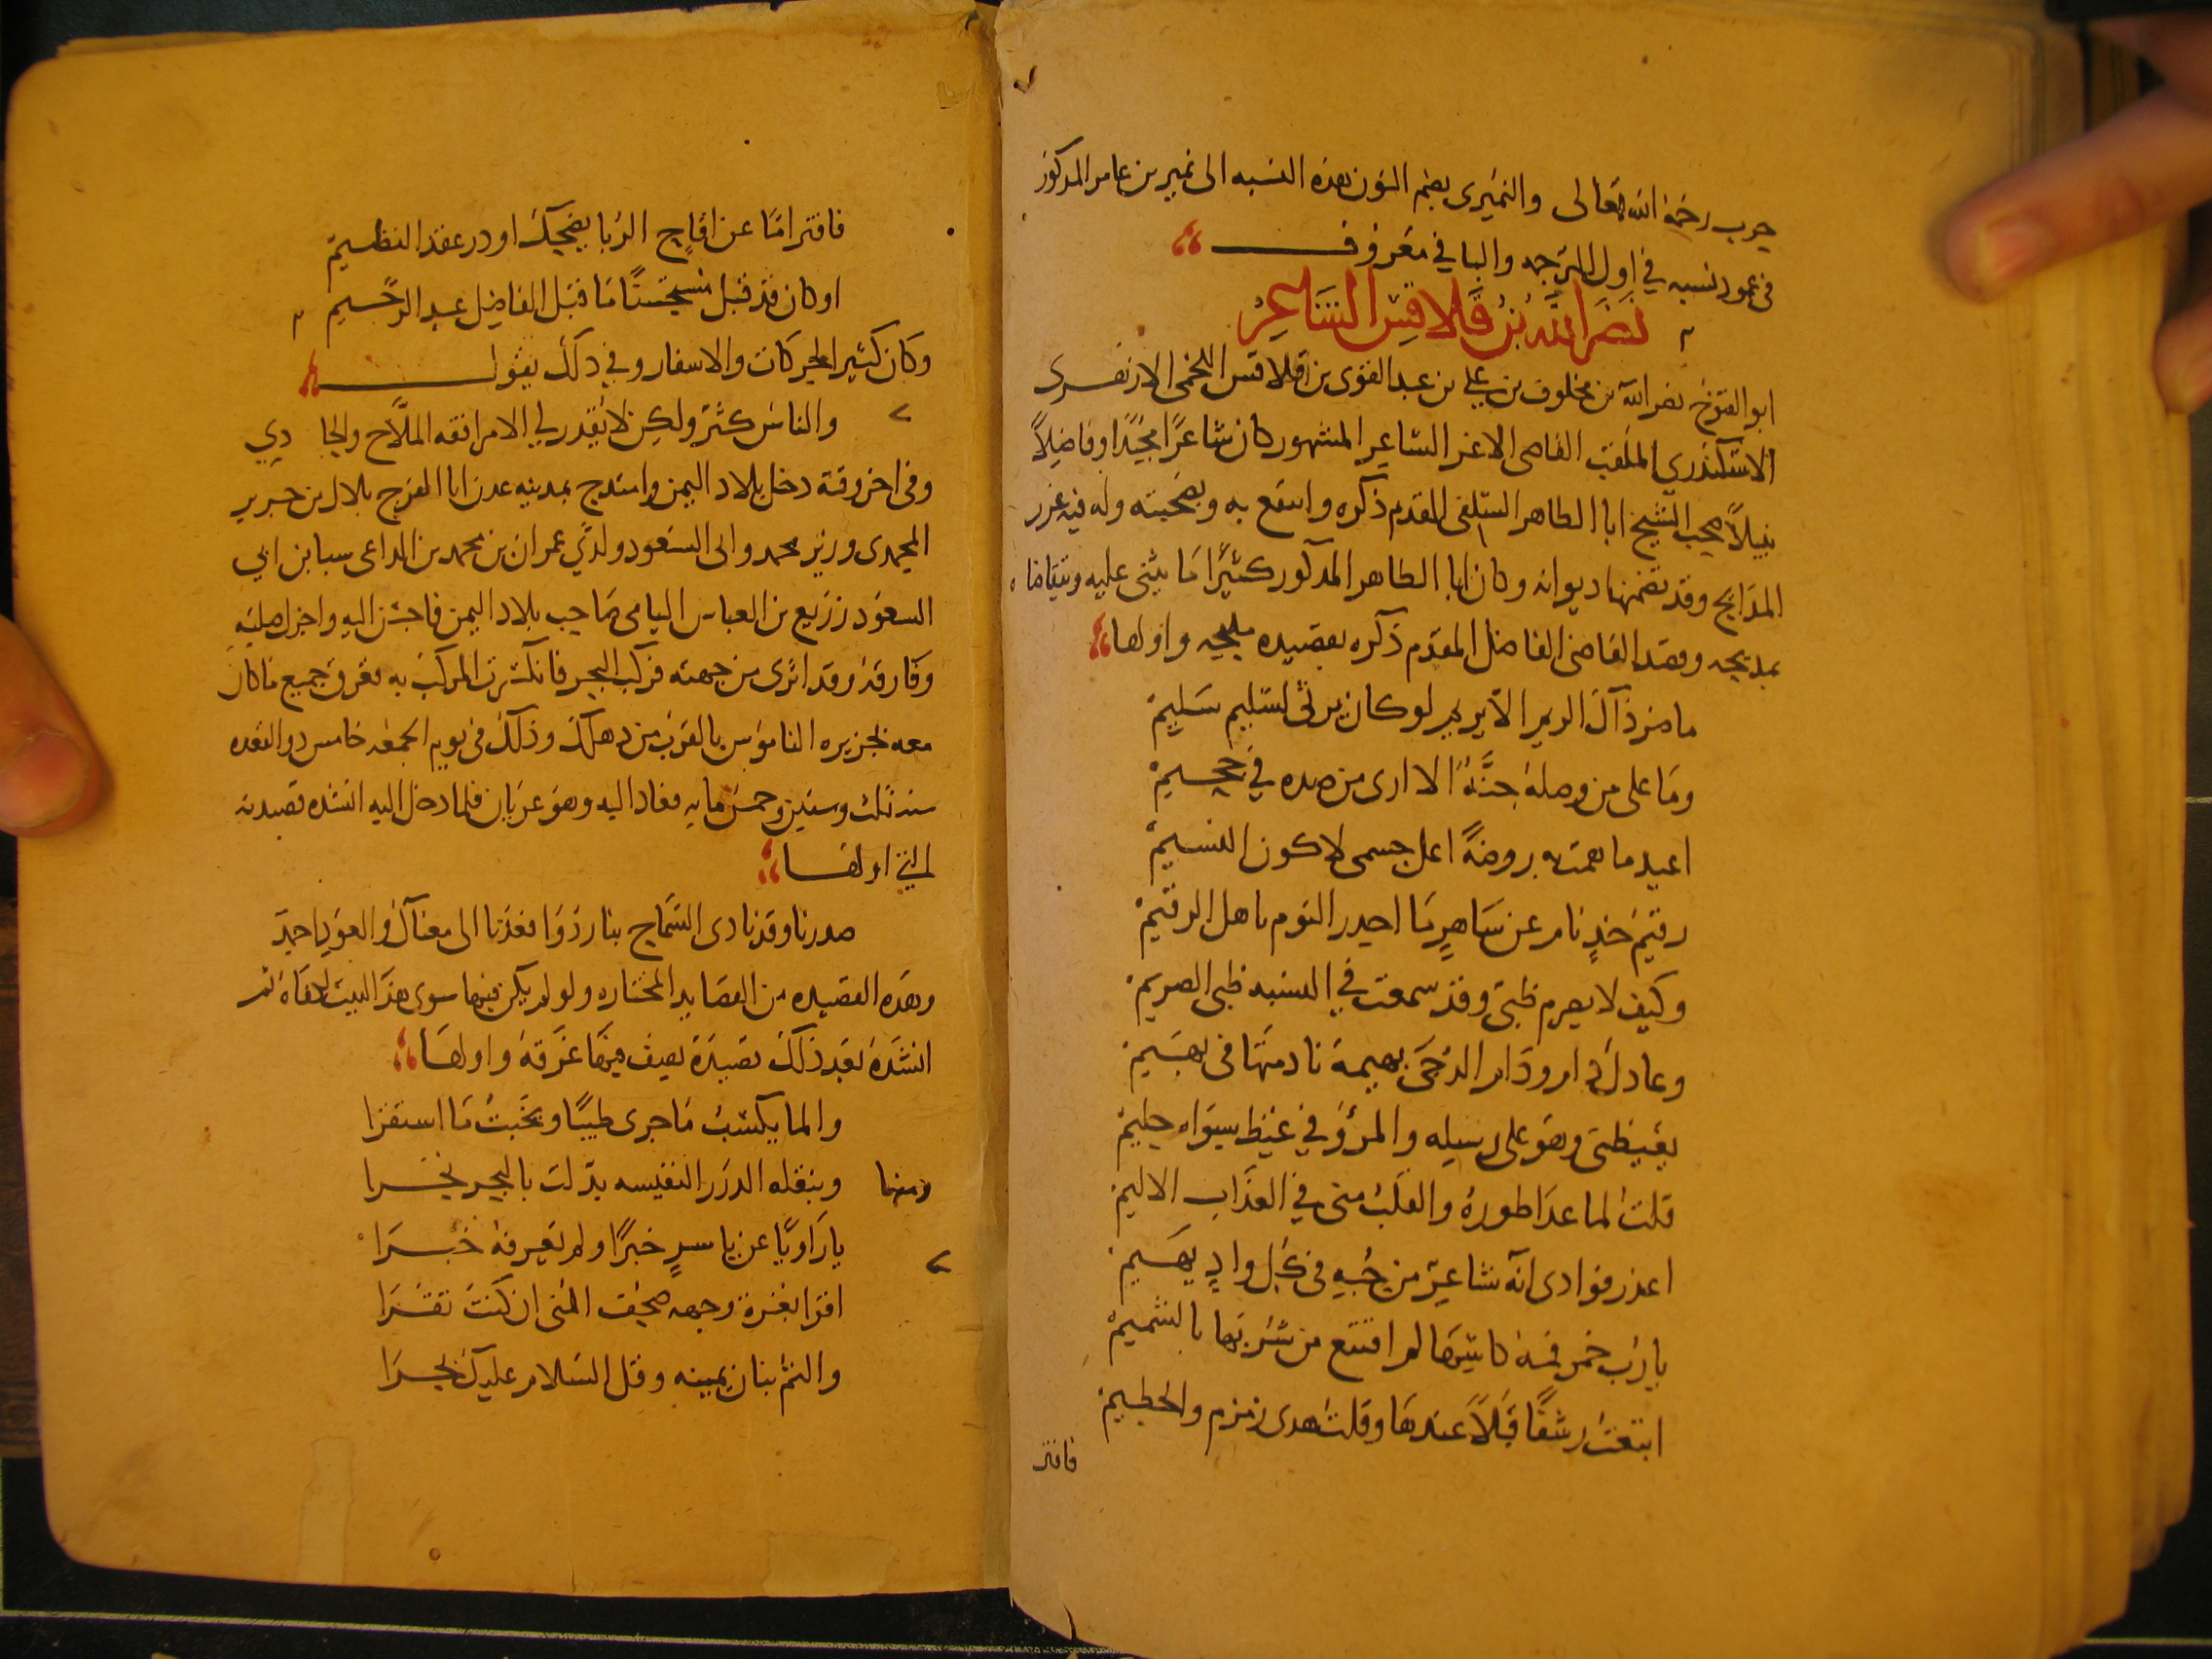 حرب رحمة الله تعالى والنميري بضم النون هذه النسبه الى نمير بن عامر المذكور
في عمود نسبه في اول الترجمه والباقي معروف
نصر الله بن قلاقس الشاعر
ابو الفتوح نصر الله بن مخلوف بن علي بن عبد القوي بن قلاقس اللخمي الازهري
الاسكندري الملقب القاضي الاعز الشاعر المشهور كان شاعرًا مجيدًا وفاضلاً
نبيلاً صحب الشيخ ابا الطاهر السلفي المقدم ذكره وانتفع به وبصحبته وله فيه غرر
المدايح وقد تضمنها ديوانه وكان ابا الطاهر المذكور كثيرًا ما يثني عليه ويتقاضاه
بمديحه وقصد القاضي الفاضل المقدم ذكره بقصيده مليحه واولها
ما ضر ذاك الريم الا يريم لو كان يرثي لسليم سليم
وما على من وصله جنةٌ الا ارى من صده في جحيم
اعيد ما همت به روضةً اعل جسمي لاكون النسيم
رقيم خدٍ نام عن ساهرٍ ما اجدر النوم باهل الرقيم
وكيف لا يصرم ظبي وقد سمعت في النسبه ظبي الصريم
وعاذل دام ودام الدجى بهيمة نادمتها في بهيم
يغيظني وهو على رسله والمرؤ في غيظ سواه حليم
قلت لما عدا طوره والقلب مني في العذاب الاليم
اعذر فوادي انه شاعر من حبه في كل وادٍ يهيم
يا رب خمر فمه كاسها لم اقتنع من شربها بالشميم
اتبعت رشفًا قبلاً عندها وقلت هدى زمزم والحطيم
فافتر
فافتر امًا عن اقاح الربا يضحك او در عقد النظيم
او كان قد قبل مستحسنًا ما قبل الفاضل عبد الرحيم
وكان كثير الحركات والاسفار وفي ذلك يقول
والناس كثر ولكن لا يقدر لي الا مرافقه الملاح والحادي
وفي اخر وقته دخل بلاد اليمن وامتدح بمدينه عدن ابا الفرج بلال بن جرير
المحمدي وزير محمد وابي السعود ولدي عمران بن محمد بن الداعي سبا بن ابي
السعود زريع بن العباس اليامي صاحب بلاد اليمن فاحسن اليه واجزل صلته
وفارقه وقد اثرى من جهته فركب البحر فانكسرت المركب به فغرق جميع ما كان
معه بجزيره الناموس بالقرب من دهلك وذلك في يوم الجمعه خامس ذو القعده
سنه ثلث وستين وخمس مايه فعاد اليه وهو عريان فلما دخل اليه انشده قصيدته
التي اولها
صدرنا وقد نادى السماح بنا ردوا فعدنا الى مغناك والعود احمد
وهذه القصيده من القصايد المختاره ولو لم يكن فيها سوى هذا البيت لكفاه ثم
انشده بعد ذلك قصيدة يصف فيها غرقه واولها
والما يكسب ما جرى طيبًا ويخبث ما استقرا
ومنها وبنقله الدرر النفيسه بدلت بالبحر نحرا
يا راويًا عن ياسرٍ خبرًا ولم يعرفه خبرا
اقرا بغرة وجهه صحف المنى ان كنت تقرا
والثم بنان يمينه وقل السلام عليك بحرا